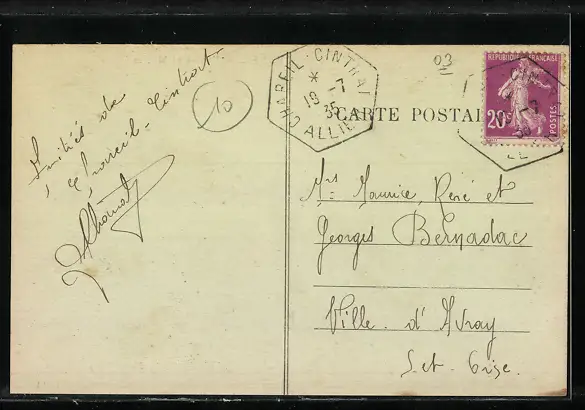 Amitiés de
Chareil-Cintrat.
10
03
CHAREIL-CINTRAT
*
19-7
35
ALLIER
CARTE POSTALE
REPUBLIQUE FRANÇAISE
20c
POSTES
Mrs Maurice, René et
Georges Bernadac
Ville d'Avray
S. et Oise.